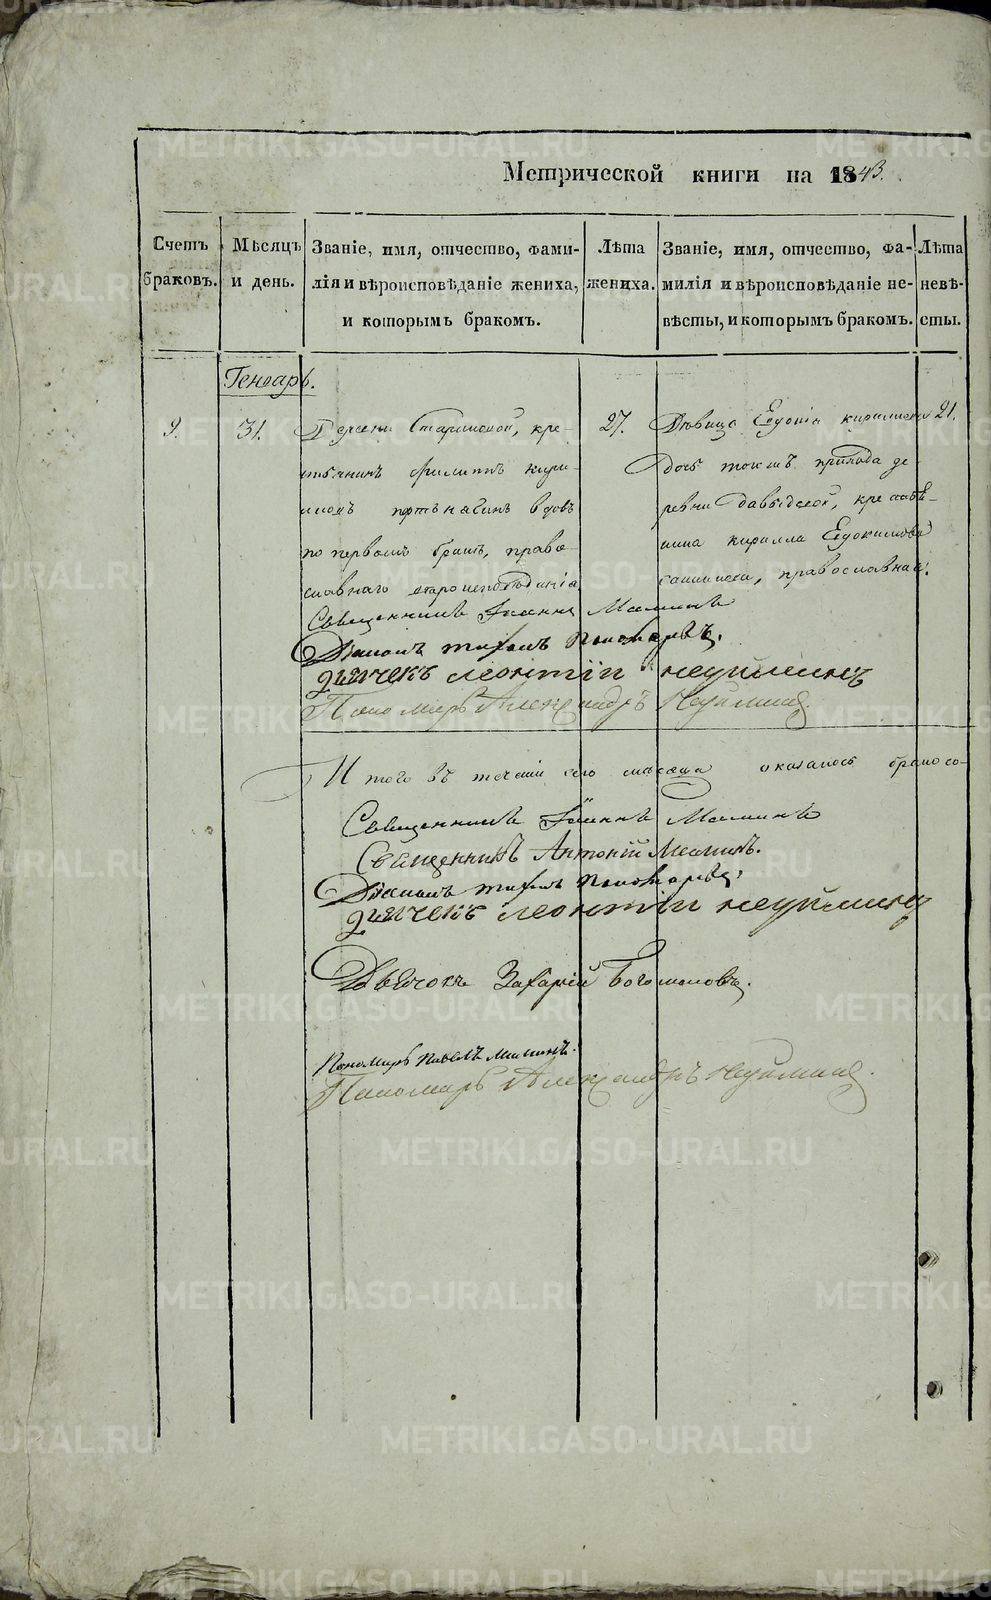 Метрической книги на 1843.
Счетъ браковъ.
Мѣсяцъ и день.
Званіе, имя, отчество, фами-
лія и вѣроисповѣданіе жениха,
и которымъ бракомъ.
Лѣта жениха.
Званіе, имя, отчество, фа-
милія и вѣроисповѣданіе не-
вѣсты, и которымъ бракомъ.
Лѣта невѣ-
сты.
Генварь.
9.
31.
кре-
стьянинъ Филиппъ
вдовъ
по первомъ бракѣ, право-
славнаго вѣроисповѣданія
27.
Дѣвица Евдокія
дочь тогожъ прихода де-
ревни Давыдовой, крестья-
нина Кирилла Евдокимова
православная.
21.
Священникъ Іоаннъ Маминъ
Діаконъ Тихонъ Пономаревъ.
Дьячекъ Леонтій Неуйминъ
Пономарь Александръ Неуйминъ.
Итого въ теченіи сего мѣсяца оказалось браковъ
Священникъ Іоаннъ Маминъ
Священникъ Антоній Маминъ.
Діаконъ Тихонъ Пономаревъ.
Дьячекъ Леонтій Неуйминъ
Дьячокъ Захарій Богомоловъ.
Пономарь Павелъ Маминъ.
Пономарь Александръ Неуйминъ.
METRIKI.GASO-URAL.RU